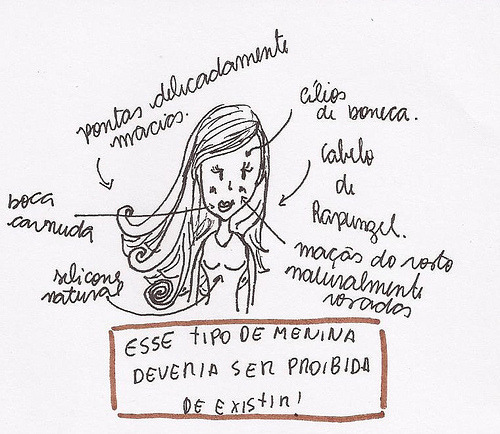 pontas delicadamente
macias.
cílios
de boneca.
cabelo
de
Rapunzel.
boca
carnuda
maçãs do rosto
naturalmente
rosadas
silicone
natural
ESSE TIPO DE MENINA
DEVERIA SER PROIBIDA
DE EXISTIR!